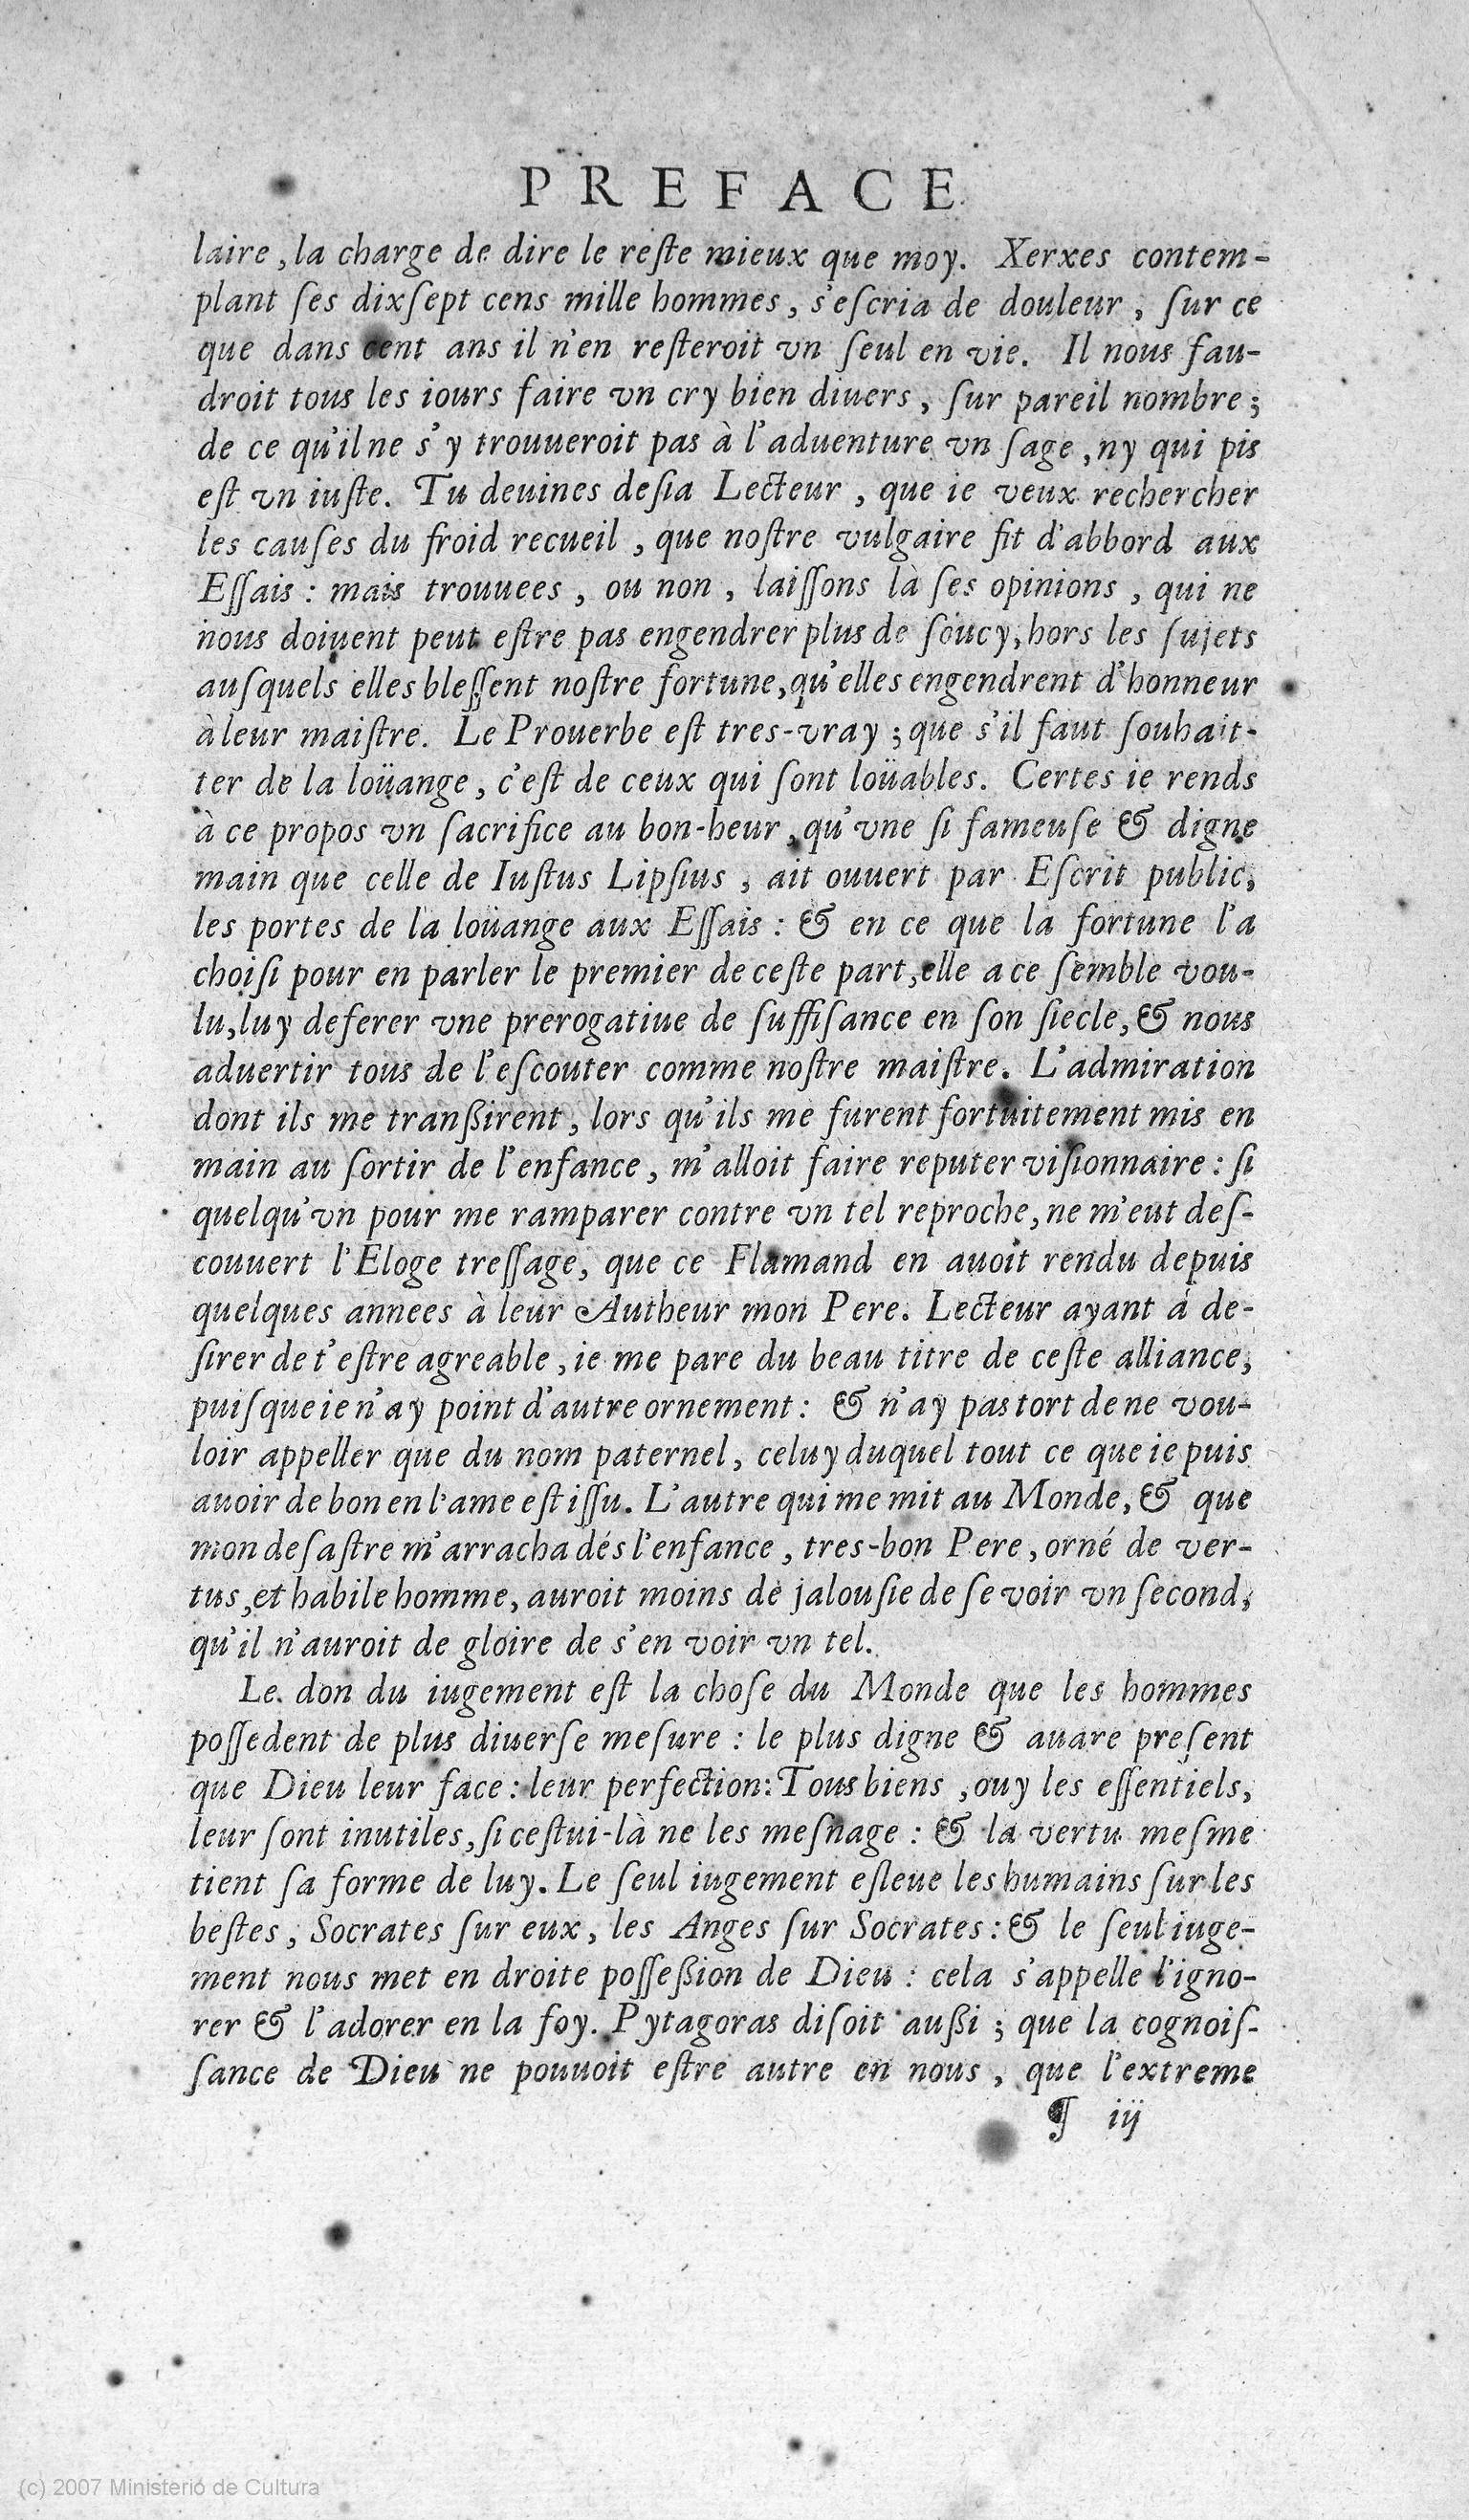 PREFACE
laire, la charge de dire le reſte mieux que moy. Xerxes contem-
plant ſes dixſept cens mille hommes, s'eſcria de douleur, ſur ce
que dans cent ans il n'en reſteroit vn ſeul en vie. Il nous fau-
droit tous les iours faire vn cry bien diuers, ſur pareil nombre;
de ce qu'il ne s'y trouueroit pas à l'aduenture vn ſage, ny qui pis
eſt vn iuſte. Tu deuines deſia Lecteur, que ie veux rechercher
les cauſes du froid recueil, que noſtre vulgaire fit d'abbord aux
Eſſais: mais trouuees, ou non, laiſſons là ſes opinions, qui ne
nous doiuent peut eſtre pas engendrer plus de ſoucy, hors les ſujets
auſquels elles bleſſent noſtre fortune, qu'elles engendrent d'honneur
à leur maiſtre. Le Prouerbe eſt tres-vray; que s'il faut ſouhait-
ter de la loüange, c'eſt de ceux qui ſont loüables. Certes ie rends
à ce propos vn ſacrifice au bon-heur, qu'vne ſi fameuſe & digne
main que celle de Iuſtus Lipſius, ait ouuert par Eſcrit public,
les portes de la loüange aux Eſſais: & en ce que la fortune l'a
choiſi pour en parler le premier de ceſte part, elle a ce ſemble vou-
lu, luy deferer vne prerogatiue de ſuffiſance en ſon ſiecle, & nous
aduertir tous de l'eſcouter comme noſtre maiſtre. L'admiration
dont ils me tranßirent, lors qu'ils me furent fortuitement mis en
main au ſortir de l'enfance, m'alloit faire reputer viſionnaire: ſi
quelqu'vn pour me ramparer contre vn tel reproche, ne m'eut deſ-
couuert l'Eloge treſſage, que ce Flamand en auoit rendu depuis
quelques annees à leur Autheur mon Pere. Lecteur ayant à de-
ſirer de t'eſtre agreable, ie me pare du beau titre de ceſte alliance,
puiſque ie n'ay point d'autre ornement: & n'ay pas tort de ne vou-
loir appeller que du nom paternel, celuy duquel tout ce que ie puis
auoir de bon en l'ame eſt iſſu. L'autre qui me mit au Monde, & que
mon deſaſtre m'arracha dés l'enfance, tres-bon Pere, orné de ver-
tus, et habile homme, auroit moins de jalouſie de ſe voir vn ſecond,
qu'il n'auroit de gloire de s'en voir vn tel.
Le don du iugement eſt la choſe du Monde que les hommes
poſſedent de plus diuerſe meſure: le plus digne & auare preſent
que Dieu leur face: leur perfection: Tous biens, ouy les eſſentiels,
leur ſont inutiles, ſi ceſtui-là ne les meſnage: & la vertu meſme
tient ſa forme de luy. Le ſeul iugement eſleue les humains ſur les
beſtes, Socrates ſur eux, les Anges ſur Socrates: & le ſeul iuge-
ment nous met en droite poſſeßion de Dieu: cela s'appelle l'igno-
rer & l'adorer en la foy. Pytagoras diſoit außi; que la cognoiſ-
ſance de Dieu ne pouuoit eſtre autre en nous, que l'extreme
¶ iij
(c) 2007 Ministerio de Cultura